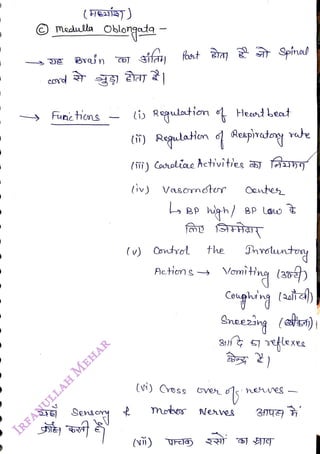 (मध्यांश)
ⓒ Medulla Oblongata -
→ यह Brain का अंतिम Part होता है जो Spinal
cord से जुड़ा होता है।
→ Functions - (i) Regulation of Heart beat
(ii) Regulation of Respiratory rate
(iii) Cardiac Activities का नियमन
(iv) Vasomotor Center
↳ BP high / BP Low के
लिए जिम्मेदार
(v) Control the Involuntary
Actions → Vomiting (उल्टी)
Coughing (खाँसी)
Sneezing (छींकना)।
आदि का reflexes
केन्द्र है।
(vi) Cross over of nerves -
यहाँ Sensory & motor Nerves आपस में
क्रॉस करती है।
(vii) पाचक रसों का स्राव
IRFANULLAH MEHAR